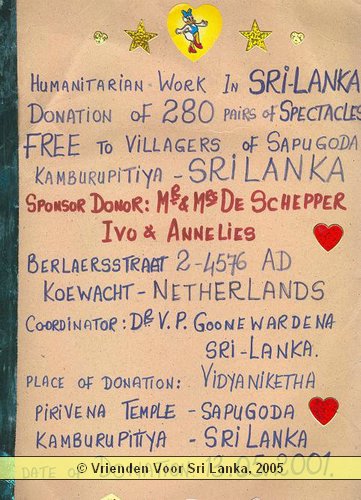 HUMANITARIAN WORK IN SRI-LANKA
DONATION OF 280 PAIRS OF SPECTACLES
FREE TO VILLAGERS OF SAPUGODA
KAMBURUPITIYA - SRI LANKA
SPONSOR DONOR: MR & MRS DE SCHEPPER
IVO & ANNELIES
BERLAERSSTRAAT 2-4576 AD
KOEWACHT - NETHERLANDS
COORDINATOR: DR V.P. GOONEWARDENA
SRI-LANKA.
PLACE OF DONATION: VIDYANIKETHA
PIRIVENA TEMPLE - SAPUGODA
KAMBURUPITIYA - SRI LANKA
DATE OF DONATION: 13.05.2001.
© Vrienden Voor Sri Lanka, 2005